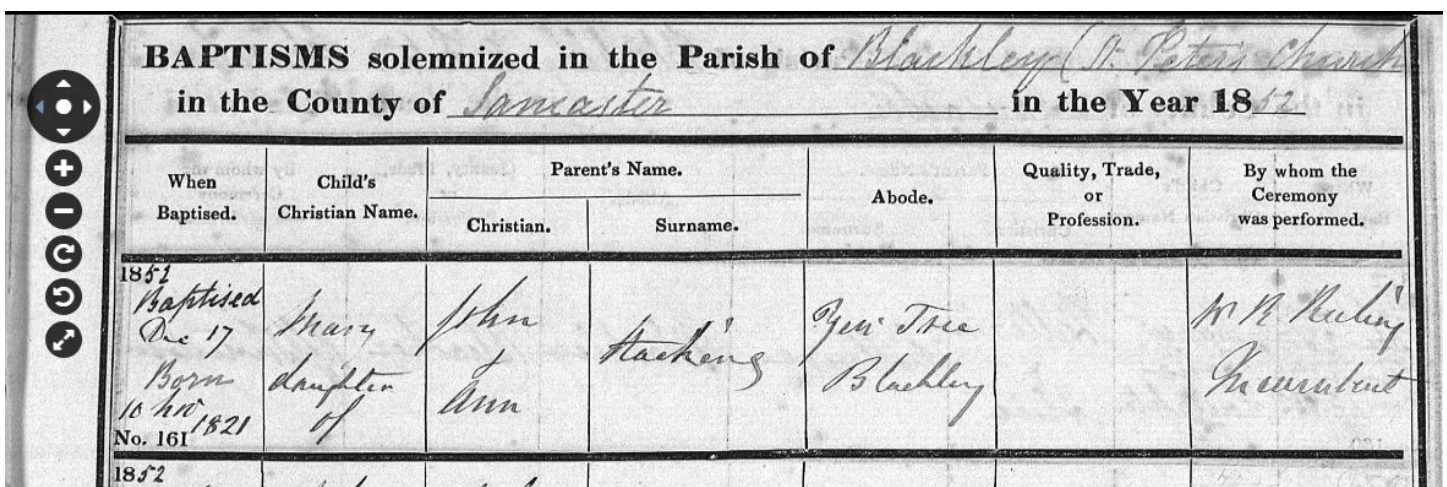 BAPTISMS solemnized in the Parish of Blackley (St. Peter's Church
in the County of Lancaster in the Year 1852
When Baptised.
Child's Christian Name.
Parent's Name.
Christian.
Surname.
Abode.
Quality, Trade, or Profession.
By whom the Ceremony was performed.
1852
Baptised
Dec 17
Born
10 Nov 1821
No. 161
Mary
daughter
of
John
&
Ann
Yew Tree
Blackley
W R Keeling
Incumbent
1852